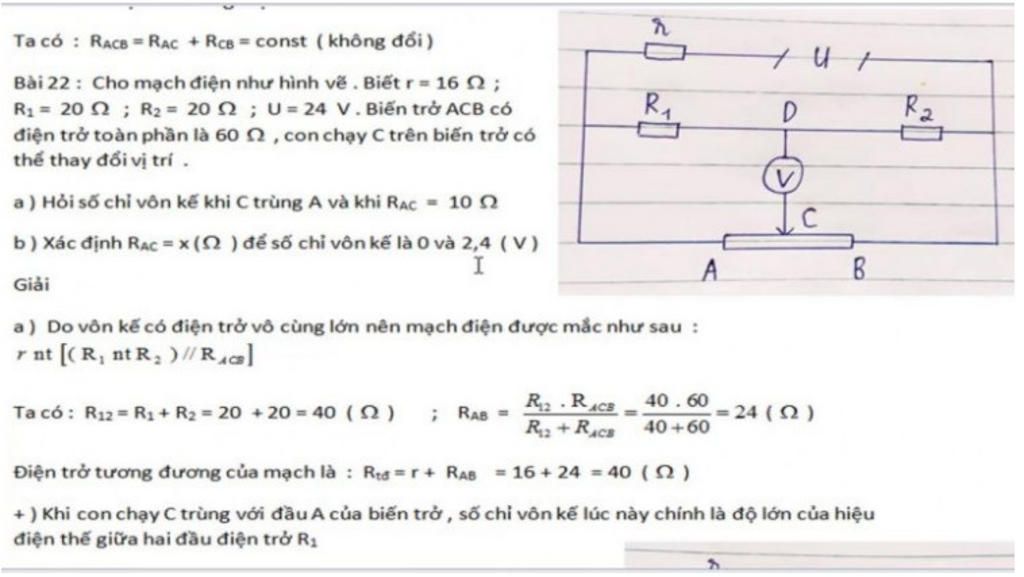 Ta có : RACB = RAC + RCB = const ( không đổi )
Bài 22 : Cho mạch điện như hình vẽ . Biết r = 16 Ω ;
R1 = 20 Ω ; R2 = 20 Ω ; U = 24 V . Biến trở ACB có
điện trở toàn phần là 60 Ω , con chạy C trên biến trở có
thể thay đổi vị trí .
a ) Hỏi số chỉ vôn kế khi C trùng A và khi RAC = 10 Ω
b ) Xác định RAC = x ( Ω ) để số chỉ vôn kế là 0 và 2,4 ( V )
Giải
r
U
R1
D
R2
V
C
A
B
a ) Do vôn kế có điện trở vô cùng lớn nên mạch điện được mắc như sau :
r nt [( R1 nt R2 ) // RACB]
Ta có : R12 = R1 + R2 = 20 + 20 = 40 ( Ω ) ; RAB = R12 . RACB / R12 + RACB = 40 . 60 / 40 + 60 = 24 ( Ω )
Điện trở tương đương của mạch là : Rtđ = r + RAB = 16 + 24 = 40 ( Ω )
+ ) Khi con chạy C trùng với đầu A của biến trở , số chỉ vôn kế lúc này chính là độ lớn của hiệu
điện thế giữa hai đầu điện trở R1